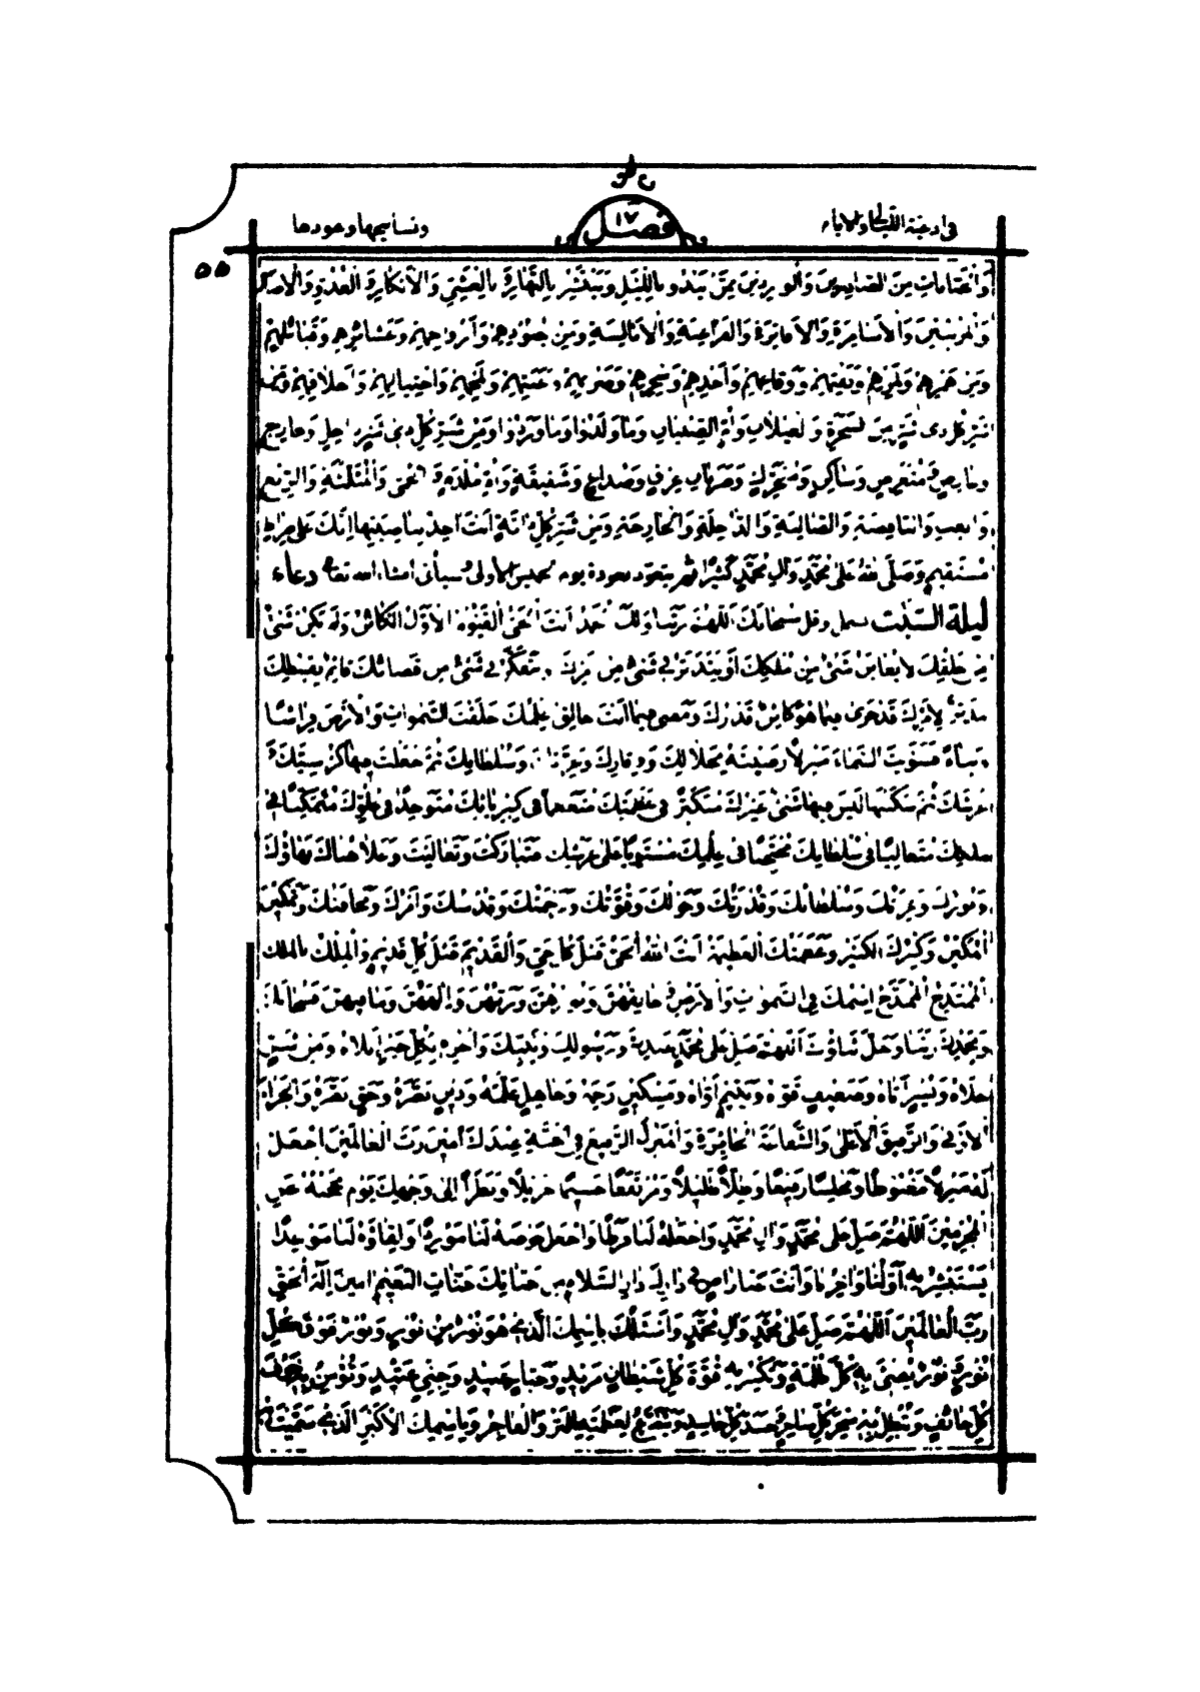 في ادعية الليالي والايام
فصل ١٧
وتسابيحها وعودها
من الصابئين ومن يبدو بالليل وينتشر بالنهار وبالعشي والابكار والغدو والاصال
والاسامرة والافاترة والفراعنة والابالسة ومن جنودهم وازواجهم وعشائرهم وقبائلهم
ومن همزهم ولمزهم ونفثهم ووقاعهم واخذهم وسحرهم وضربهم وعبثهم ولمحهم واحتيالهم واخلافهم ومن
شر كل ذي شر من السحرة والغيلان وام الصبيان وما ولدوا وما وردوا ومن شر كل ذي شر داخل وخارج
ومتعرض وساكن ومتحرك وضربان عرق وصداع وشقيقة وام ملدم والحمى والمثلثة والربع
والغب والنافضة والصالبة والداخلة والخارجة ومن شر كل دابة انت اخذ بناصيتها انك على صراط
مستقيم وصلى الله على محمد وال محمد كثيرا ثم يتعوذ بعوذة يوم الخميس دعاء
ليلة السبت وقل سبحانك اللهم ربنا ولك الحمد انت الحي القيوم الاول الكائن ولم تكن شيء
من خلقك شيء من ملكك او يتدبر في شيء من امرك او يتفكر في شيء من قضائك قائم بقسطك
لامرك قد جرى فيما هو كائن قدرك ومضى فيما انت خالق علمك خلقت السموات والارض فراشا
وبناء فسويت السماء منزلا رضيته لجلالك ووقارك وعزتك وسلطانك ثم جعلت فيها كرسيك و
عرشك ثم سكنتها ليس فيها شيء غيرك متكبرا في عظمتك متعظما في كبريائك متوحدا في علوك متمكنا في
ملكك متعاليا في سلطانك محتجبا في علمك مستويا على عرشك فتباركت وتعاليت وعلا هناك بهاؤك
ونورك وعزتك وسلطانك وقدرتك وحولك وقوتك ورحمتك وقدسك وامرك ومخافتك وتمكينك
المكين وكبرك الكبير وعظمتك العظيمة انت الله الحي قبل كل حي والقديم قبل كل قديم والملك بالملك
الممتدح الممدح اسمك في السموات والارض خالقهن ونورهن وربهن والههن وما فيهن فسبحانك
وبحمدك ربنا وجل ثناؤك اللهم صل على محمد عبدك ورسولك ونبيك واجزه بكل خير ابلاه ومن شر
جلاه ويسر اتاه وضعيف قواه ويتيم اواه ومسكين رحمه وجاهل علمه ودين بصره وحق نصره والجزاء
الاوفى والرفيق الاعلى والشفاعة الجائزة والمنزل الرفيع في الجنة عندك امين رب العالمين اجعل
له منزلا مغبوطا ومجلسا رفيعا وظلا ظليلا ومرتفعا جسيما جزيلا ونظرا الى وجهك يوم تحجبه عن
المجرمين اللهم صل على محمد وال محمد واجعله لنا فرطا واجعل حوضه لنا موردا ولقاؤه لنا موعدا
يستبشر به اولنا واخرنا وانت عنا راض في دارك دار السلام من جناتك جنات النعيم امين اله الحق
رب العالمين اللهم صل على محمد وال محمد واسئلك باسمك الذي هو نور من نور ونور فوق كل
نور ونور يضيء به كل ظلمة ويكسر به قوة كل شيطان مريد وجبار عنيد وجني عتيد وتؤمن به خوف
كل خائف وتبطل به سحر كل ساحر وحسد كل حاسد ويتضرع لعظمته البر والفاجر وباسمك الاكبر الذي سميت به